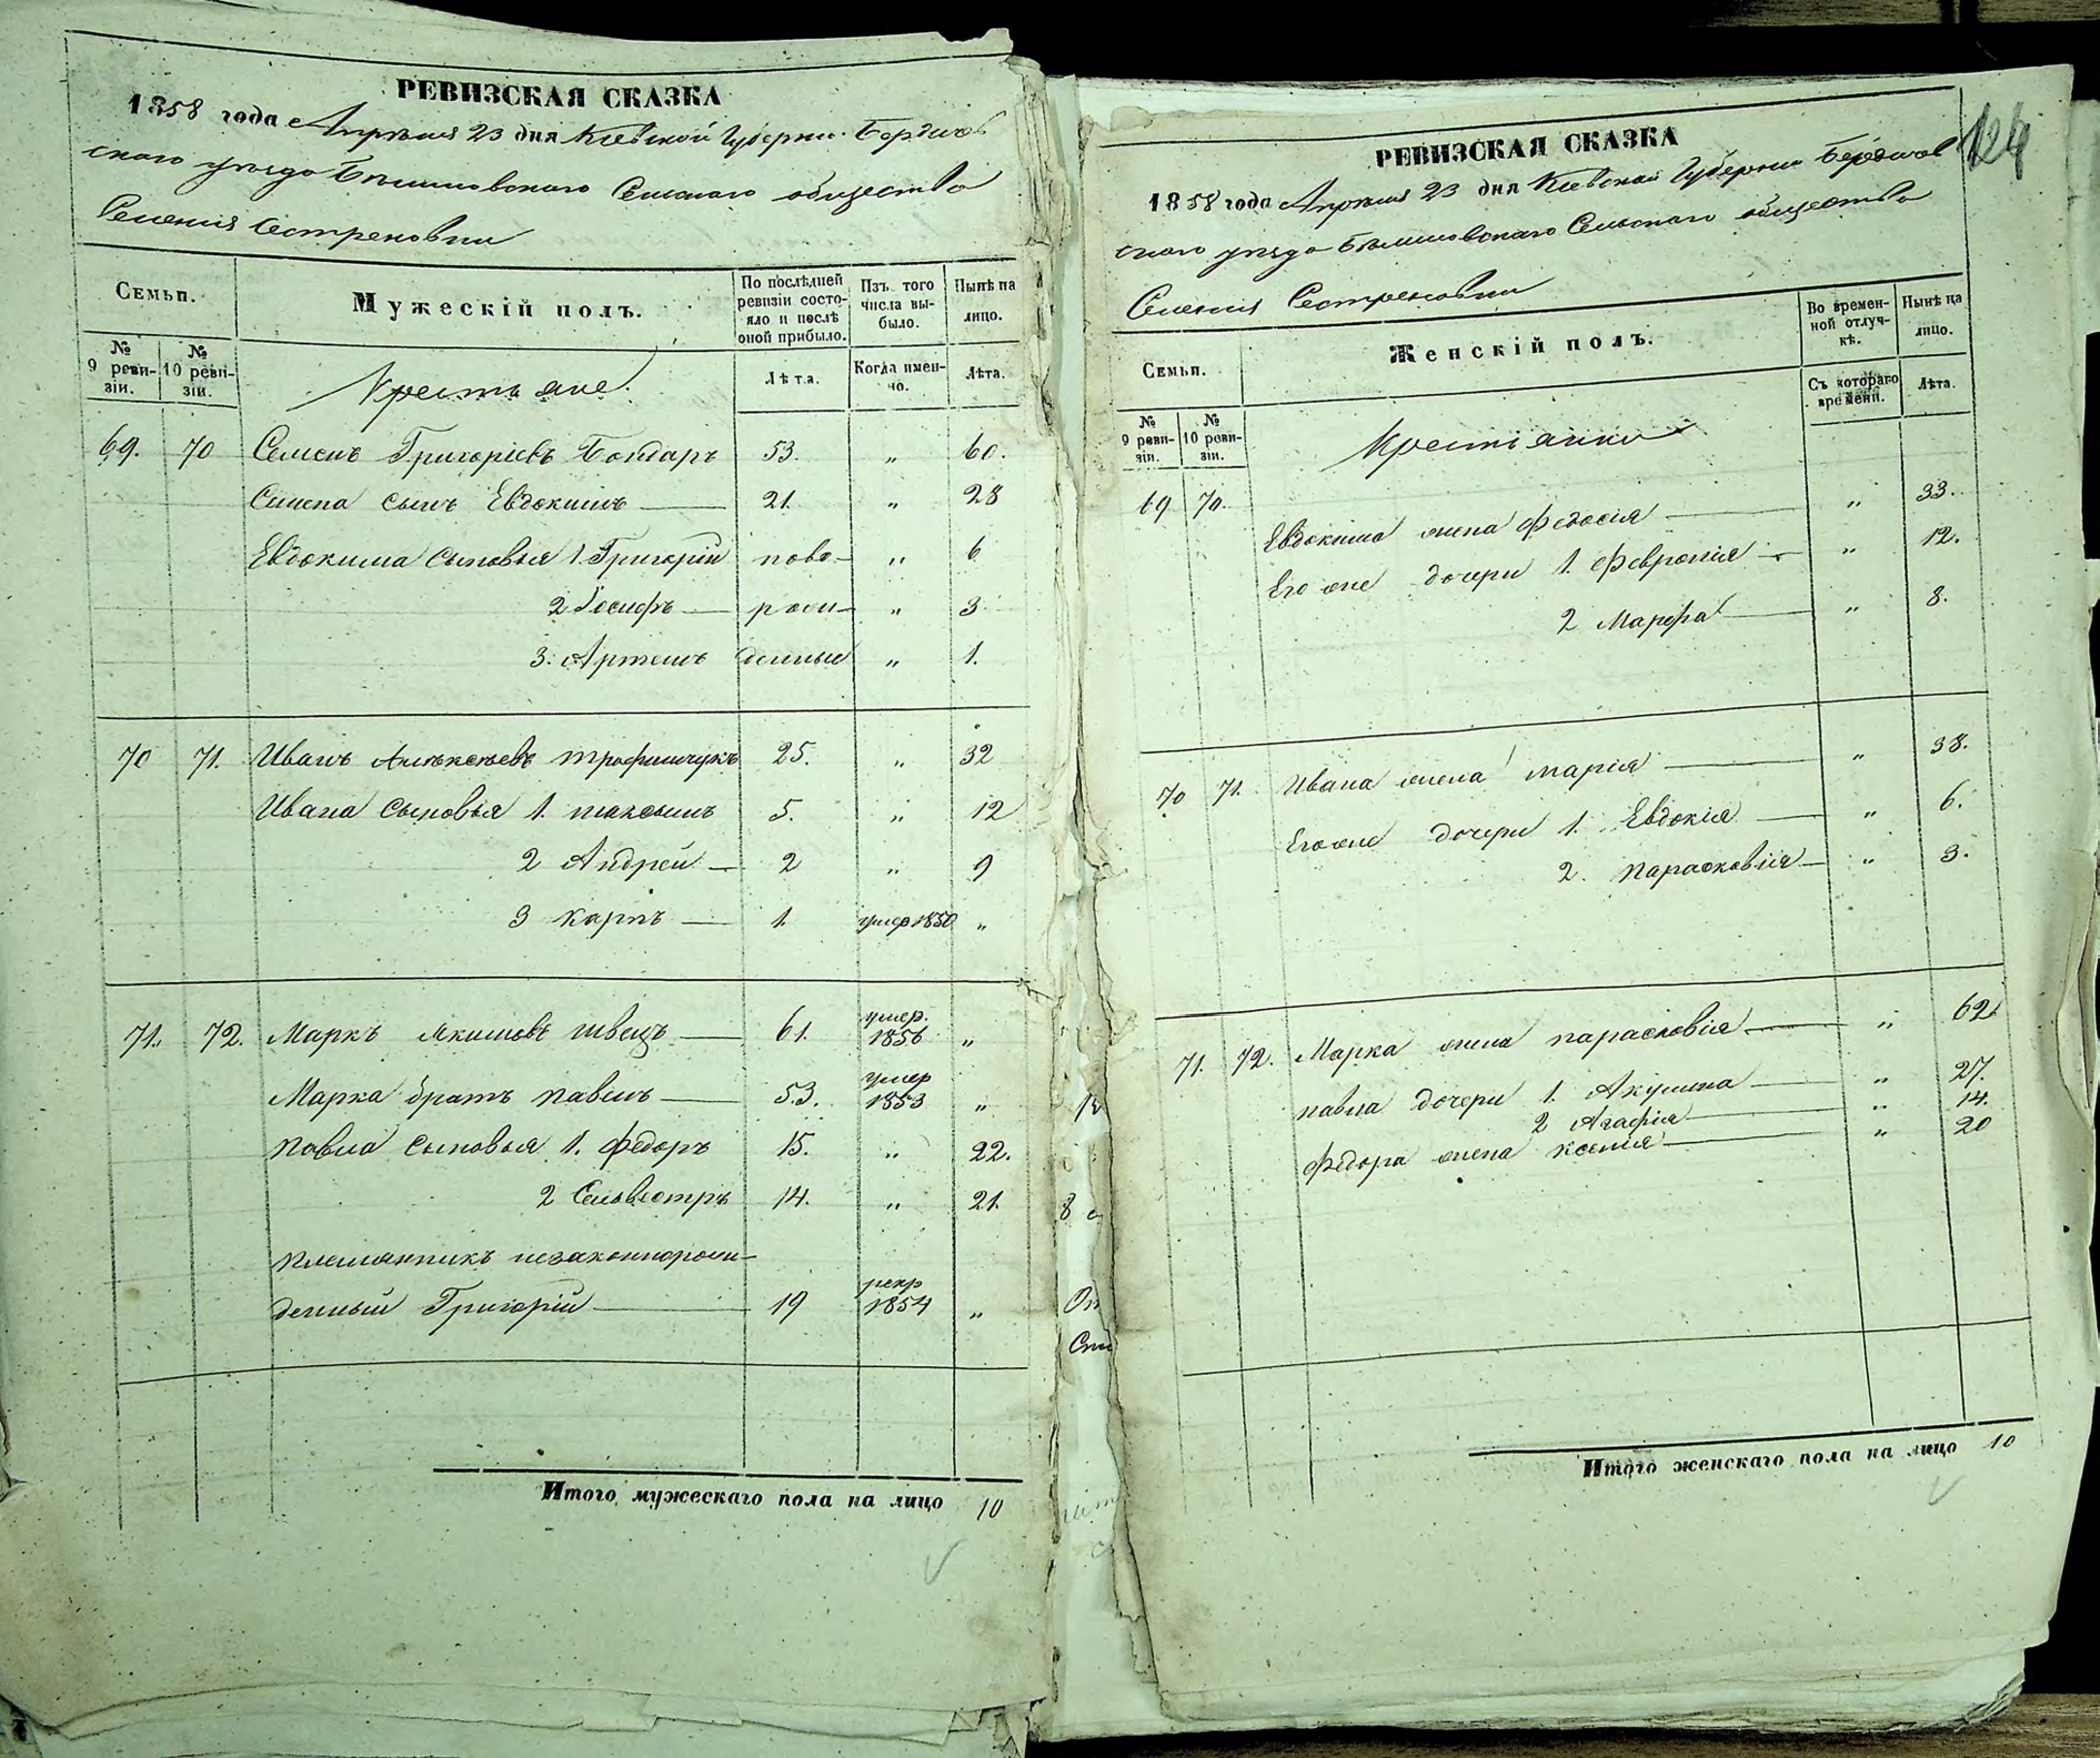 РЕВИЗСКАЯ СКАЗКА
1858 года Апрѣля 23 дня Кіевской Губерніи Бердичев
скаго уѣзда Сельскаго общества
Селенія Сестреновки
Семьи.
Мужескій полъ.
По послѣдней ревизіи состояло и послѣ оной прибыло.
Изъ того числа выбыло.
Нынѣ на лицо.
№ 9 ревизіи.
№ 10 ревизіи.
Крестьяне.
Лѣта.
Когда именно.
Лѣта.
69. 70 Семенъ Григоріевъ Бондарь 53. „ 60.
Семена сынъ Евдокимъ 21. „ 28
Евдокима сыновья 1. Григорій ново- „ 6
2 Іосифъ рож- „ 3
3. Артемъ денные „ 1.
70 71. Иванъ Алексѣевъ Трофимчукъ 25. „ 32
Ивана сыновья 1. Максимъ 5. „ 12
2 Андрей 2 „ 9
3 Карпъ 1. умер 1850 „
71. 72. Марко Якимовъ Швецъ 61. умер. 1856 „
Марка братъ Павелъ 53. умер 1853 „
Павла сыновья 1. Федоръ 15. „ 22.
2 Сильвестръ 14. „ 21.
Племянникъ незаконнорож-
денный Григорій 19 рекр 1854 „
Итого мужескаго пола на лицо 10
124
РЕВИЗСКАЯ СКАЗКА
1858 года Апрѣля 23 дня Кіевской Губерніи Бердичев
скаго уѣзда Сельскаго общества
Селенія Сестреновки
Семьи.
Женскій полъ.
Во временной отлучкѣ.
Нынѣ на лицо.
№ 9 ревизіи.
№ 10 ревизіи.
Крестьянки
Съ котораго времени.
Лѣта.
69 70. Евдокима жена Федосія „ 33.
Его же дочери 1. Февронія „ 12.
2 Марфа „ 8.
70 71. Ивана жена Марія „ 38.
Его же дочери 1. Евдокія „ 6.
2. Парасковія „ 3.
71. 72. Марка жена Парасковія „ 62
Павла дочери 1. Акулина „ 27.
2 Агафія „ 14.
Федора жена Ксенія „ 20
Итого женскаго пола на лицо 10